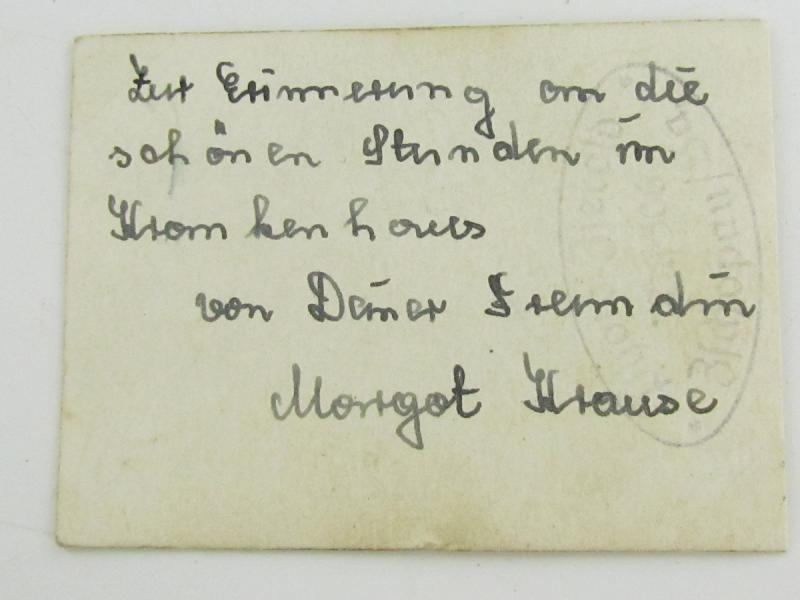 Zur Erinnerung an die
schönen Stunden im
Krankenhaus
von Deiner Freundin
Margot Krause